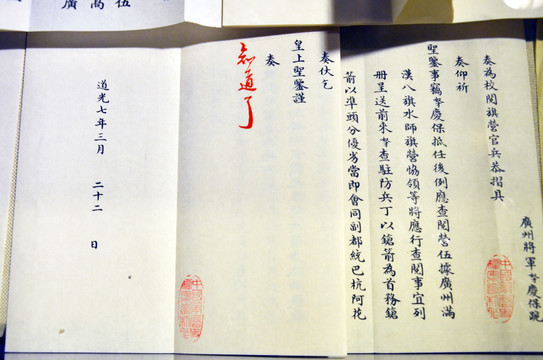 廣州將軍奴才慶保跪
奏為校閱旗營官兵恭摺具
奏仰祈
聖鑒事竊奴才慶保抵任後例應查閱營伍據廣州滿
漢八旗水師旗營協領等將應行查閱事宜列
冊呈送前來奴才查駐防兵丁以鎗箭為首務鎗
箭以準頭分優劣當即會同副都統巴杭阿花
奏伏乞
皇上聖鑒謹
奏
知道了
道光七年三月 二十二 日